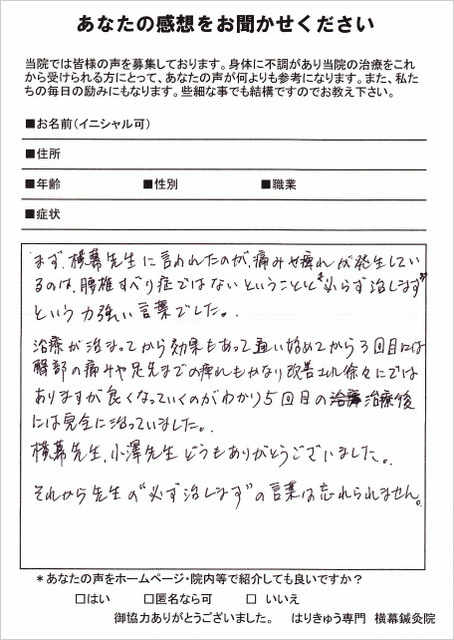 あなたの感想をお聞かせください
当院では皆様の声を募集しております。身体に不調があり当院の治療をこれ
から受けられる方にとって、あなたの声が何よりも参考になります。また、私た
ちの毎日の励みにもなります。些細な事でも結構ですのでお教え下さい。
■お名前(イニシャル可)
■住所
■年齢 ■性別 ■職業
■症状
まず、横幕先生に言われたのが、痛みや痺れが発生してい
るのは、腰椎すべり症ではないということと"必らず治します"
という力強い言葉でした。
治療が治まってから効果もあって通い始めてから3回目には
臀部の痛みや足先までの痺れもかなり改善され徐々にでは
ありますが良くなっていくのがわかり5回目の治療後
には完全に治っていました。
横幕先生、小澤先生どうもありがとうございました。
それから先生の"必ず治します"の言葉は忘れられません。
*あなたの声をホームページ・院内等で紹介しても良いですか?
□はい □匿名なら可 □いいえ
御協力ありがとうございました。 はりきゅう専門 横幕鍼灸院